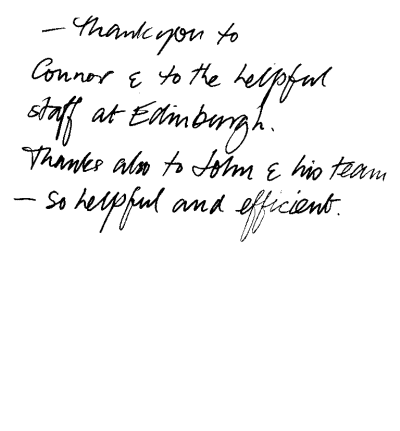 – Thank you to
Connor & to the helpful
staff at Edinburgh.
Thanks also to John & his team
– so helpful and efficient.